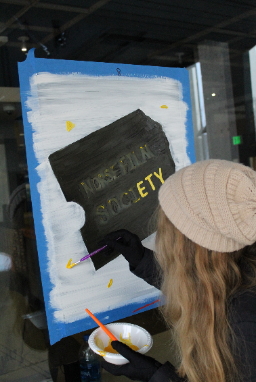 NORSE FILM
SOCIETY